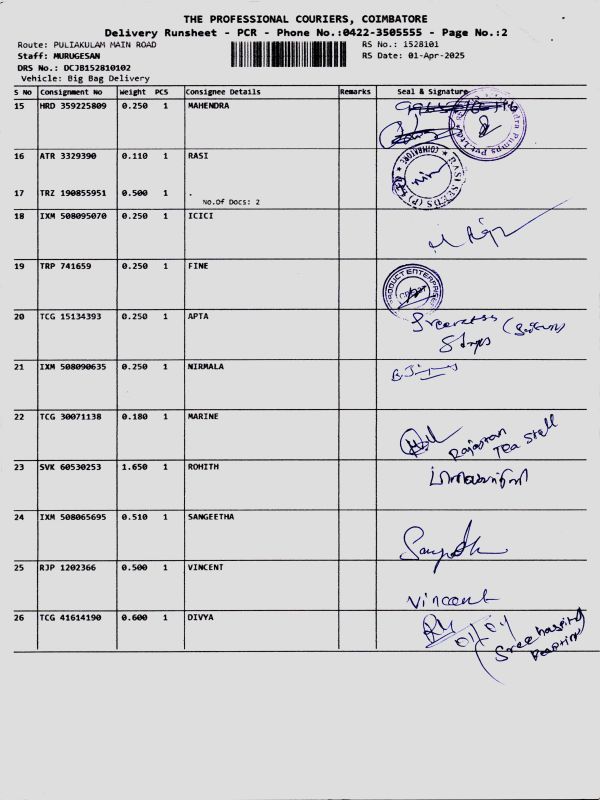 THE PROFESSIONAL COURIERS, COIMBATORE
Delivery Runsheet - PCR - Phone No.:0422-3505555 - Page No.:2
Route: PULIAKULAM MAIN ROAD RS No.: 1528101
Staff: MURUGESAN RS Date: 01-Apr-2025
DRS No.: DCJB152810102
Vehicle: Big Bag Delivery
S No Consignment No Weight PCS Consignee Details Remarks Seal & Signature
15 HRD 359225809 0.250 1 MAHENDRA
16 ATR 3329390 0.110 1 RASI
COIMBATORE RASI SEEDS (P)
17 TRZ 190855951 0.500 1 .
No.Of Docs: 2
18 IXM 508095070 0.250 1 ICICI
19 TRP 741659 0.250 1 FINE
20 TCG 15134393 0.250 1 APTA
21 IXM 508090635 0.250 1 NIRMALA
22 TCG 30071138 0.180 1 MARINE
Rajastan
Tea Stall
23 SVK 60530253 1.650 1 ROHITH
24 IXM 508065695 0.510 1 SANGEETHA
25 RJP 1202366 0.500 1 VINCENT
Vincent
26 TCG 41614190 0.600 1 DIVYA
01/04